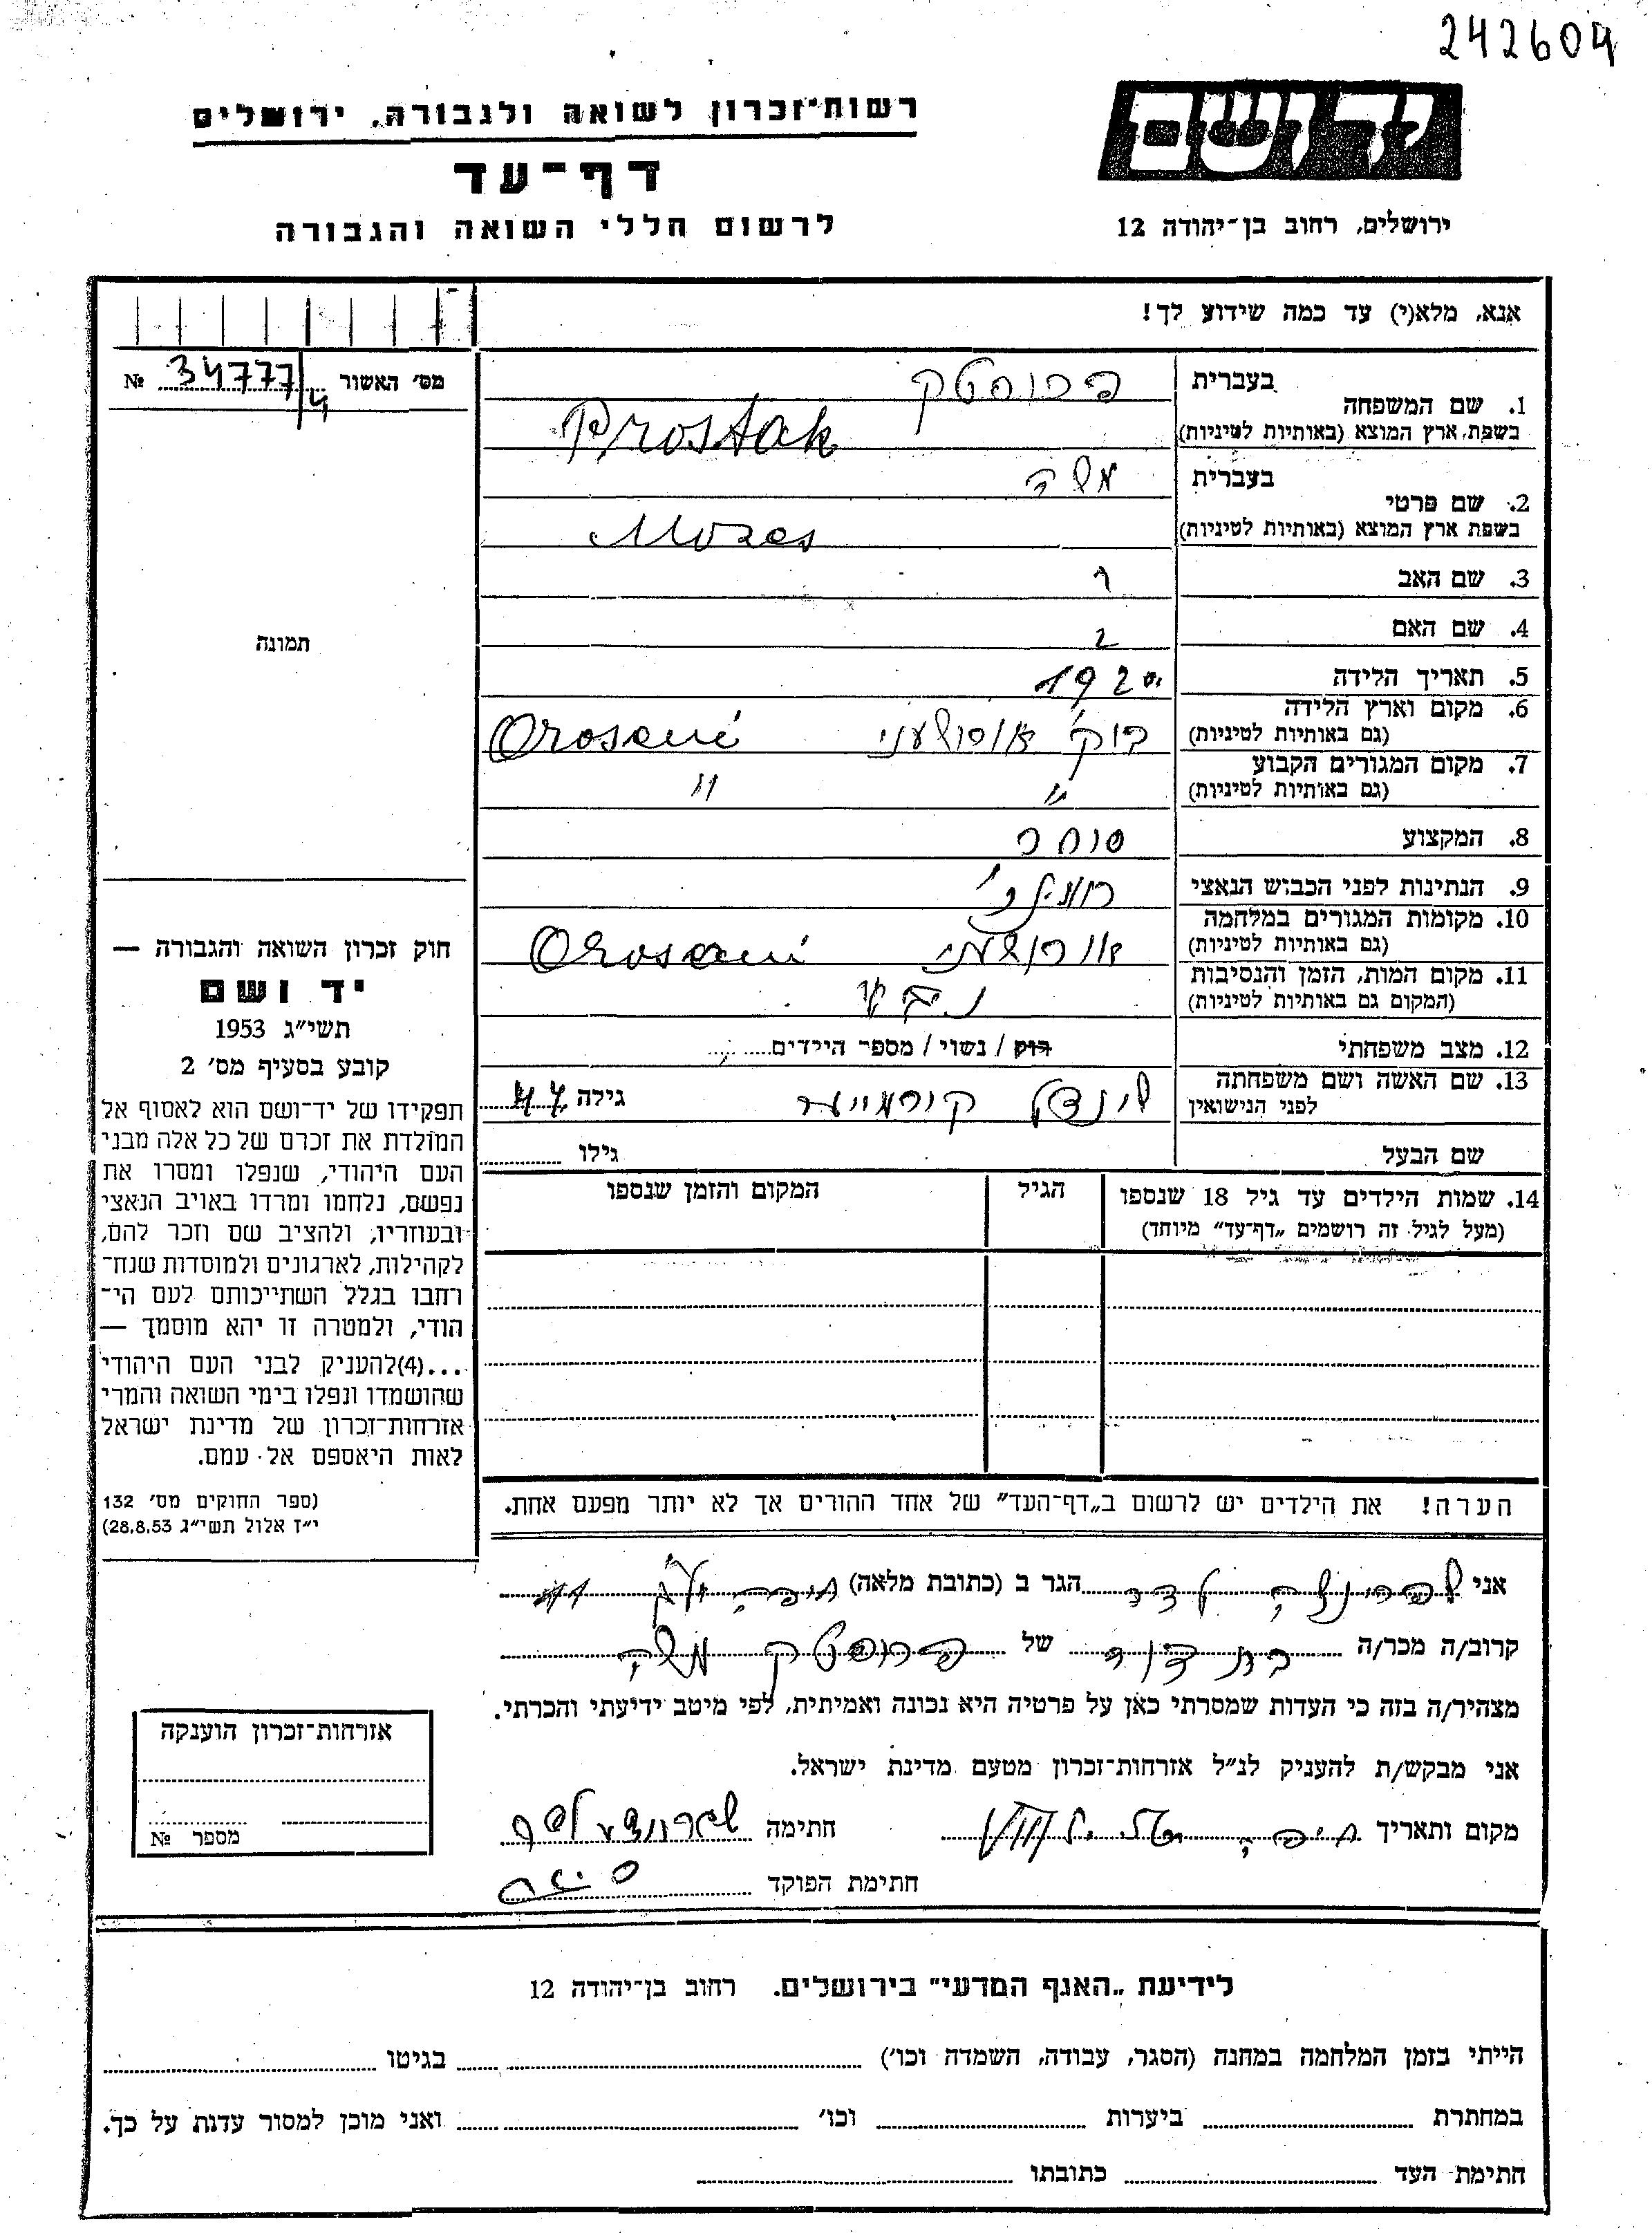 242604
רשות־זכרון לשואה ולגבורה, ירושלים
יד ושם
דף־עד
לרשום חללי השואה והגבורה
ירושלים, רחוב בן־יהודה 12
אנא, מלא(י) עד כמה שידוע לך!
מס׳ האשור № 34777/4
תמונה
1. שם המשפחה
בעברית פרוסטק
בשפת ארץ המוצא (באותיות לטיניות) Prostak
2. שם פרטי
בעברית משה
בשפת ארץ המוצא (באותיות לטיניות) Mozes
3. שם האב ?
4. שם האם ?
5. תאריך הלידה 1920
6. מקום וארץ הלידה
(גם באותיות לטיניות) Oroseni
7. מקום המגורים הקבוע
(גם באותיות לטיניות) " "
8. המקצוע סוחר
9. הנתינות לפני הכבוש הנאצי רומני
10. מקומות המגורים במלחמה
(גם באותיות לטיניות) Oroseni
11. מקום המות, הזמן והנסיבות
(המקום גם באותיות לטיניות)
12. מצב משפחתי רוק / נשוי / מספר הילדים
13. שם האשה ושם משפחתה
לפני הנישואין גילה 44
שם הבעל גילו
14. שמות הילדים עד גיל 18 שנספו הגיל המקום והזמן שנספו
(מעל לגיל זה רושמים „דף־עד״ מיוחד)
הערה! את הילדים יש לרשום ב„דף־העד״ של אחד ההורים אך לא יותר מפעם אחת.
חוק זכרון השואה והגבורה —
יד ושם
תשי״ג 1953
קובע בסעיף מס׳ 2
תפקידו של יד־ושם הוא לאסוף אל
המולדת את זכרם של כל אלה מבני
העם היהודי, שנפלו ומסרו את
נפשם, נלחמו ומרדו באויב הנאצי
ובעוזריו, ולהציב שם וזכר להם,
לקהילות, לארגונים ולמוסדות שנח־
רחבו בגלל השתייכותם לעם הי־
הודי, ולמטרה זו יהא מוסמך —
...(4)להעניק לבני העם היהודי
שהושמדו ונפלו בימי השואה והמרי
אזרחות־זכרון של מדינת ישראל
לאות היאספם אל עמם.
(ספר החוקים מס׳ 132
י״ז אלול תשי״ג 28.8.53)
אני הגר ב (כתובת מלאה) חיפה
קרוב/ה מכר/ה בת דוד של פרוסטק משה
מצהיר/ה בזה כי העדות שמסרתי כאן על פרטיה היא נכונה ואמיתית, לפי מיטב ידיעתי והכרתי.
אני מבקש/ת להעניק לנ״ל אזרחות־זכרון מטעם מדינת ישראל.
מקום ותאריך חיפה, חתימה
חתימת הפוקד
אזרחות־זכרון הוענקה
מספר №
לידיעת „האגף המדעי״ בירושלים. רחוב בן־יהודה 12
הייתי בזמן המלחמה במחנה (הסגר, עבודה, השמדה וכו׳) בגיטו
במחתרת ביערות וכו׳ ואני מוכן למסור עדות על כך.
חתימת העד כתובתו